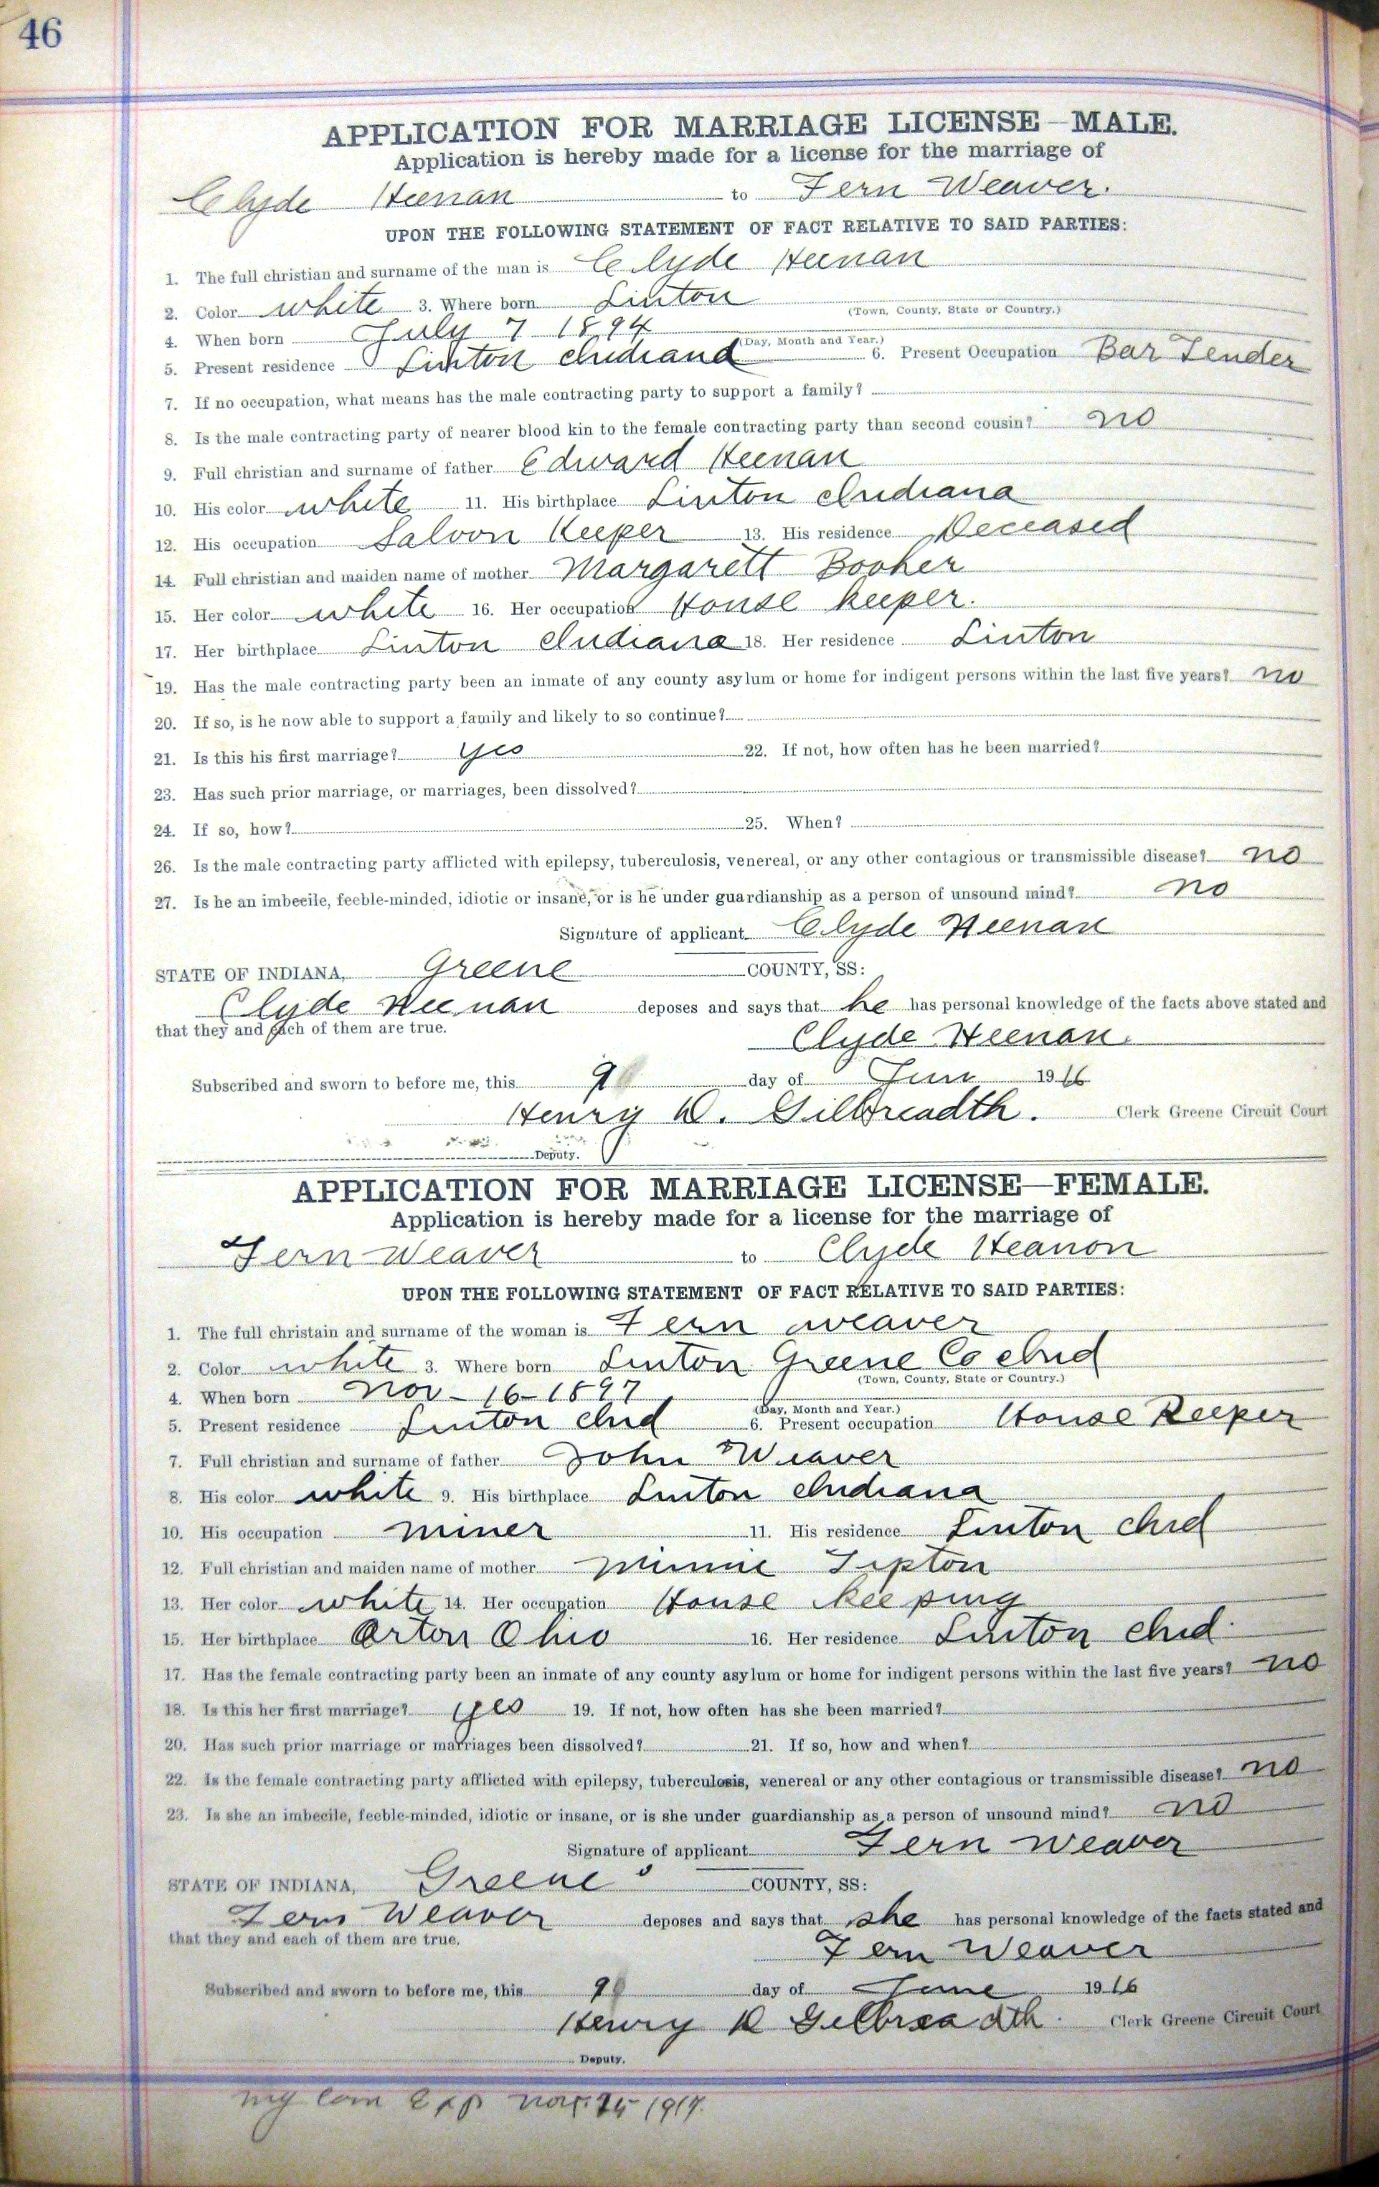 46
APPLICATION FOR MARRIAGE LICENSE—MALE.
Application is hereby made for a license for the marriage of
Clyde Heenan to Fern Weaver.
UPON THE FOLLOWING STATEMENT OF FACT RELATIVE TO SAID PARTIES:
1. The full christian and surname of the man is Clyde Heenan
2. Color white 3. Where born Linton
(Town, County, State or Country.)
4. When born July 7 1894
(Day, Month and Year.)
5. Present residence Linton Indiana 6. Present Occupation Bar Tender
7. If no occupation, what means has the male contracting party to support a family?
8. Is the male contracting party of nearer blood kin to the female contracting party than second cousin? no
9. Full christian and surname of father Edward Heenan
10. His color white 11. His birthplace Linton Indiana
12. His occupation Saloon Keeper 13. His residence Deceased
14. Full christian and maiden name of mother Margarett Booher
15. Her color white 16. Her occupation House keeper.
17. Her birthplace Linton Indiana 18. Her residence Linton
19. Has the male contracting party been an inmate of any county asylum or home for indigent persons within the last five years? no
20. If so, is he now able to support a family and likely to so continue?
21. Is this his first marriage? yes 22. If not, how often has he been married?
23. Has such prior marriage, or marriages, been dissolved?
24. If so, how? 25. When?
26. Is the male contracting party afflicted with epilepsy, tuberculosis, venereal, or any other contagious or transmissible disease? no
27. Is he an imbecile, feeble-minded, idiotic or insane, or is he under guardianship as a person of unsound mind? no
Signature of applicant Clyde Heenan
STATE OF INDIANA, Greene COUNTY, SS:
Clyde Heenan deposes and says that he has personal knowledge of the facts above stated and
that they and each of them are true.
Clyde Heenan.
Subscribed and sworn to before me, this 9 day of Jun 1916
Henry D. Gilbreadth. Clerk Greene Circuit Court
Deputy.
APPLICATION FOR MARRIAGE LICENSE—FEMALE.
Application is hereby made for a license for the marriage of
Fern Weaver to Clyde Heanon
UPON THE FOLLOWING STATEMENT OF FACT RELATIVE TO SAID PARTIES:
1. The full christain and surname of the woman is Fern weaver
2. Color white 3. Where born Linton Greene Co Ind
(Town, County, State or Country.)
4. When born Nov - 16 - 1897
(Day, Month and Year.)
5. Present residence Linton Ind 6. Present occupation House Keeper
7. Full christian and surname of father John Weaver
8. His color white 9. His birthplace Linton Indiana
10. His occupation miner 11. His residence Linton Ind
12. Full christian and maiden name of mother Minnie Tipton
13. Her color white 14. Her occupation House keeping
15. Her birthplace Orton Ohio 16. Her residence Linton Ind.
17. Has the female contracting party been an inmate of any county asylum or home for indigent persons within the last five years? no
18. Is this her first marriage? yes 19. If not, how often has she been married?
20. Has such prior marriage or marriages been dissolved? 21. If so, how and when?
22. Is the female contracting party afflicted with epilepsy, tuberculosis, venereal or any other contagious or transmissible disease? no
23. Is she an imbecile, feeble-minded, idiotic or insane, or is she under guardianship as a person of unsound mind? no
Signature of applicant Fern Weaver
STATE OF INDIANA, Greene COUNTY, SS:
Fern Weaver deposes and says that she has personal knowledge of the facts stated and
that they and each of them are true.
Fern Weaver
Subscribed and sworn to before me, this 9 day of June 1916
Henry D Gilbreadth. Clerk Greene Circuit Court
Deputy.
my Com Exp Nov. 15 1917.